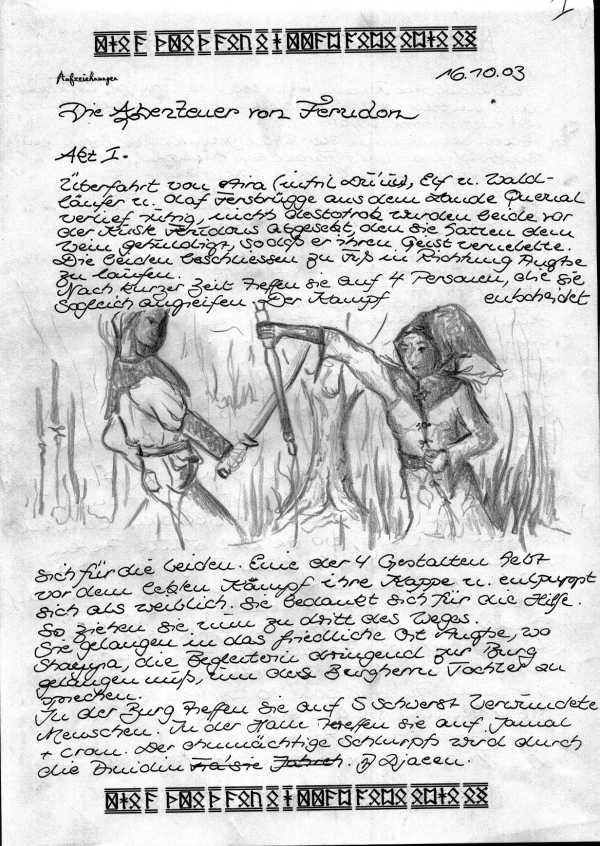 I
Aufzeichnungen
16.10.03
Die Abenteuer von Ferudon
Akt I.
Überfahrt von (intril), Elf u. Wald-
läufer u. Olaf Fersbrügge aus dem Lande Querual
verlief ruhig, nicht destotrotz wurden beide vor
der Küste Ferudons abgesetzt, denn sie hatten dem
Wein gehuldigt, sodaß er ihren Geist vernebelte.
Die beiden beschliessen zu Fuß in Richtung Aughe
zu laufen.
Nach kurzer Zeit treffen sie auf 4 Personen, die sie
sogleich angreifen. Der Kampf entscheidet
sich für die beiden. Eine der 4 Gestalten hebt
vor dem letzten Kampf ihre Kappe u. entpuppt
sich als weiblich. Sie bedankt sich für die Hilfe.
So ziehen sie nun zu dritt des Weges.
Sie gelangen in das friedliche Ort Aughe, wo
die Begleiterin dringend zur Burg
gelangen muß, um des Burgherrn Tochter zu
sprechen.
In der Burg treffen sie auf 5 schwerst Verwundete
Menschen. In der Halle treffen sie auf Jamal
+ Cran. Der ohnmächtige Schlurpfs wird durch
die Druidin